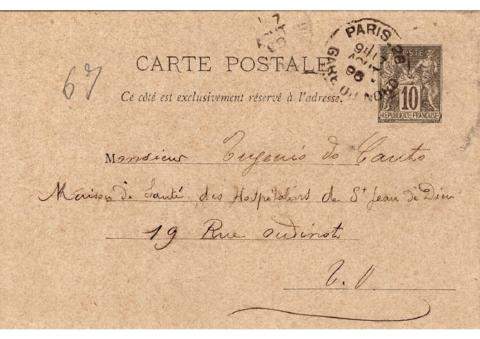 CARTE POSTALE
Ce côté est exclusivement réservé à l'adresse.
PARIS 26
GARE DU NORD
AOUT
96
10
POSTES
REPUBLIQUE FRANÇAISE
7
AOUT
67
Monsieur Eugenio do Canto
Maison de Santé des Hospitaliers de St Jean de Dieu
19 Rue Oudinot
E. V